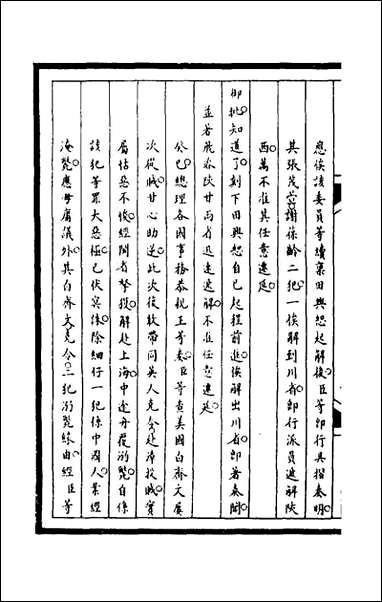 應俟該委員等續稟田興恕起解後臣等即行具摺奏明
其張茂萱謝葆齡二犯一俟解到川省即行派員遞解陝
西萬不准其任意遷延
御批知道了刻下田興恕自已起程前進俟解出川省即著奏聞
並著飛咨陝甘兩省迅速遞解不准任意遷延
癸巳總理各國事務恭親王等奏臣等查美國白齊文屢
次從賊甘心助逆此次復敢帶同英人克令赴漳投賊實
屬怙惡不悛經閩省拏獲解赴上海中途舟覆溺斃自係
該犯等罪大惡極已伏冥誅除細仔一犯係中國人業經
淹斃應毋庸議外其白齊文克令二犯溺斃緣由經臣等